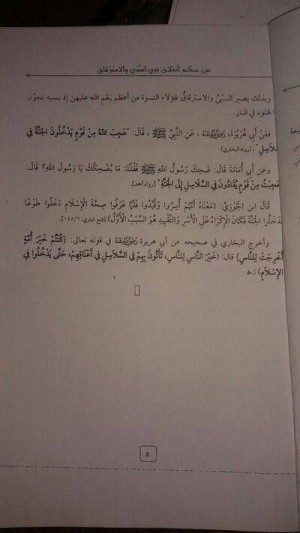 عن حكم الخلاق في السبي والاسترقاق
وبذلك يصير السبي والاسترقاق لهؤلاء النسوة من أعظم نعم الله عليهن إذ بسببه نجون
الخلود في النار.
فعَنْ أَبِي هُرَيْرَةَ، عَنِ النَّبِيِّ ﷺ، قَالَ: "عَجِبَ اللهُ مِنْ قَوْمٍ يَدْخُلُونَ الجَنَّةَ فِي
السَّلَاسِلِ" (رواه البخاري)
وعن أبي أُمَامَةَ قَالَ: ضَحِكَ رَسُولُ اللهِ ﷺ فَقُلْنَا: مَا يُضْحِكُكَ يَا رَسُولَ اللهِ؟ قَالَ:
عَجِبْتُ مِنْ قَوْمٍ يُقَادُونَ فِي السَّلَاسِلِ إِلَى الْجَنَّةِ" (رواه أحمد)
قَالَ ابن الجَوْزِيِّ: (مَعْنَاهُ أَنَّهُمْ أُسِرُوا وَقُيِّدُوا فَلَمَّا عَرَفُوا صِحَّةَ الْإِسْلَامِ دَخَلُوا طَوْعًا
فَدَخَلُوا الْجَنَّةَ فَكَانَ الْإِكْرَاهُ عَلَى الْأَسْرِ وَالتَّقْيِيدِ هُوَ السَّبَبُ الْأَوَّلُ) (فتح الباري
وأخرج البخاري في صحيحه عن أبي هريرة في قوله تعالى: (كُنْتُمْ خَيْرَ أُمَّةٍ
أُخْرِجَتْ لِلنَّاسِ) قال: (خَيْرَ النَّاسِ لِلنَّاسِ، تَأْتُونَ بِهِمْ فِي السَّلَاسِلِ فِي أَعْنَاقِهِمْ، حَتَّى يَدْخُلُوا فِي
الإِسْلَامِ) ا.هـ
٥